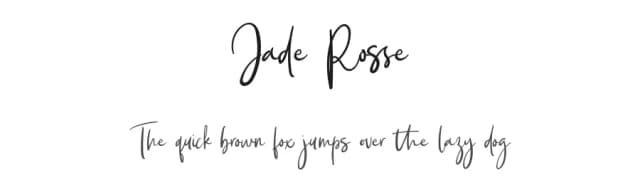 Jade Rosse
The quick brown fox jumps over the lazy dog